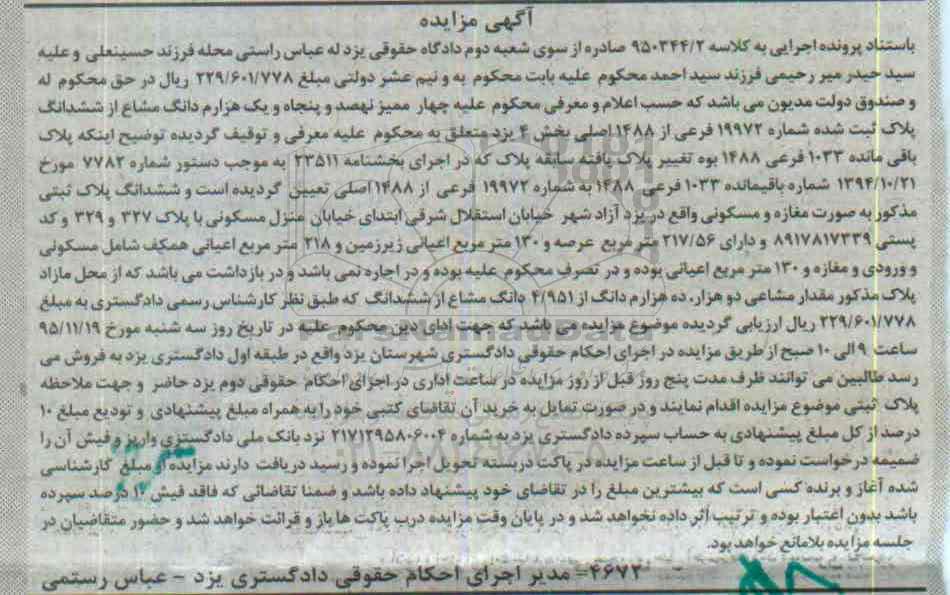 آگهی مزایده
باستناد پرونده اجرایی به کلاسه ۹۵۰۳۴۴/۲ صادره از سوی شعبه دوم دادگاه حقوقی یزد له عباس راستی محله فرزند حسینعلی و علیه
سید حیدر میر رحیمی فرزند سید احمد محکوم علیه بابت محکوم به و نیم عشر دولتی مبلغ ۲۲۹/۶۰۱/۷۷۸ ریال در حق محکوم له
و صندوق دولت مدیون می باشد که حسب اعلام و معرفی محکوم علیه چهار ممیز نهصد و پنجاه و یک هزارم دانگ مشاع از ششدانگ
پلاک ثبت شده شماره ۱۹۹۷۲ فرعی از ۱۴۸۸ اصلی بخش ۴ یزد متعلق به محکوم علیه معرفی و توقیف گردیده توضیح اینکه پلاک
باقی مانده ۱۰۳۳ فرعی ۱۴۸۸ بوه تغییر پلاک یافته سابقه پلاک که در اجرای بخشنامه ۲۳۵۱۱ به موجب دستور شماره ۷۷۸۲ مورخ
۱۳۹۴/۱۰/۲۱ شماره باقیمانده ۱۰۳۳ فرعی ۱۴۸۸ به شماره ۱۹۹۷۲ فرعی از ۱۴۸۸ اصلی تعیین گردیده است و ششدانگ پلاک ثبتی
مذکور به صورت مغازه و مسکونی واقع در یزد آزاد شهر خیابان استقلال شرقی ابتدای خیابان منزل مسکونی با پلاک ۳۲۷ و ۳۲۹ و کد
پستی ۸۹۱۷۸۱۷۳۳۹ و دارای ۲۱۷/۵۶ متر مربع عرصه و ۱۳۰ متر مربع اعیانی زیرزمین و ۲۱۸ متر مربع اعیانی همکف شامل مسکونی
و ورودی و مغازه و ۱۳۰ متر مربع اعیانی بوده و در تصرف محکوم علیه بوده و در اجاره نمی باشد و در بازداشت می باشد که از محل مازاد
پلاک مذکور مقدار مشاعی دو هزار، ده هزارم دانگ از ۴/۹۵۱ دانگ مشاع از ششدانگ که طبق نظر کارشناس رسمی دادگستری به مبلغ
۲۲۹/۶۰۱/۷۷۸ ریال ارزیابی گردیده موضوع مزایده می باشد که جهت ادای دین محکوم علیه در تاریخ روز سه شنبه مورخ ۹۵/۱۱/۱۹
ساعت ۹ الی ۱۰ صبح از طریق مزایده در اجرای احکام حقوقی دادگستری شهرستان یزد واقع در طبقه اول دادگستری یزد به فروش می
رسد طالبین می توانند ظرف مدت پنج روز قبل از روز مزایده در ساعت اداری در اجرای احکام حقوقی دوم یزد حاضر و جهت ملاحظه
پلاک ثبتی موضوع مزایده اقدام نمایند و در صورت تمایل به خرید آن تقاضای کتبی خود را به همراه مبلغ پیشنهادی و تودیع مبلغ ۱۰
درصد از کل مبلغ پیشنهادی به حساب سپرده دادگستری یزد به شماره ۲۱۷۱۲۹۵۸۰۶۰۰۴ نزد بانک ملی دادگستری واریز و فیش آن را
ضمیمه درخواست نموده و تا قبل از ساعت مزایده در پاکت دربسته تحویل اجرا نموده و رسید دریافت دارند مزایده از مبلغ کارشناسی
شده آغاز و برنده کسی است که بیشترین مبلغ را در تقاضای خود پیشنهاد داده باشد و ضمنا تقاضائی که فاقد فیش ۱۰ درصد سپرده
باشد بدون اعتبار بوده و ترتیب اثر داده نخواهد شد و در پایان وقت مزایده درب پاکت ها باز و قرائت خواهد شد و حضور متقاضیان در
جلسه مزایده بلامانع خواهد بود.
۴۶۷۲- مدیر اجرای احکام حقوقی دادگستری یزد - عباس رستمی